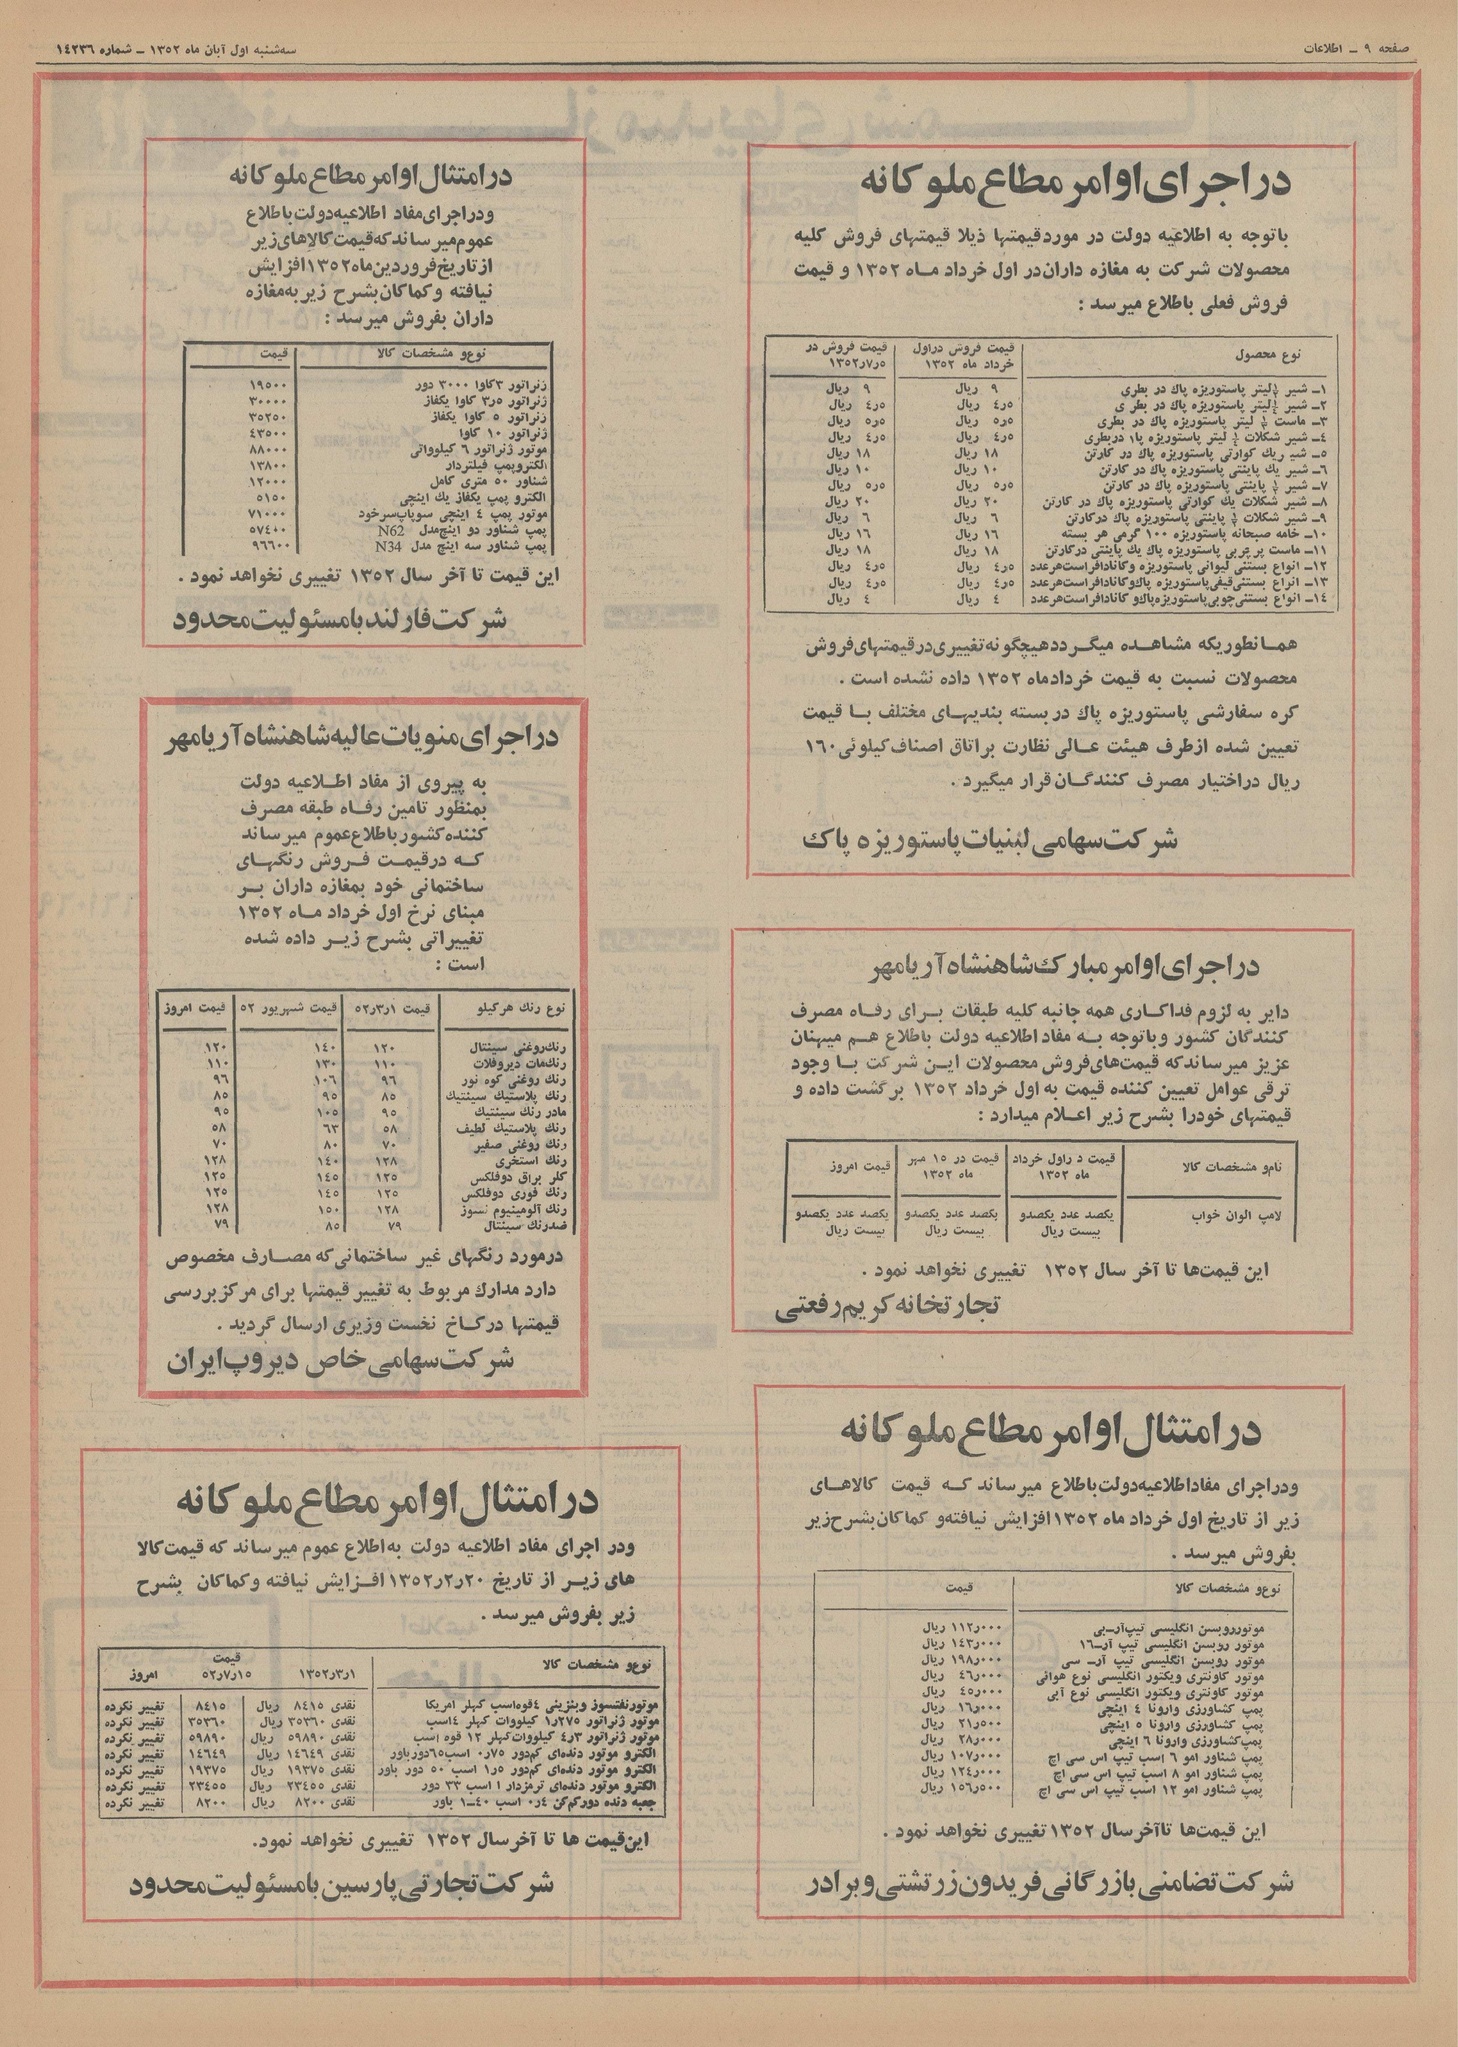 صفحه ۹ ـ اطلاعات
سه‌شنبه اول آبان ماه ۱۳۵۲ ـ شماره ۱۴۲۳۶
در اجرای اوامر مطاع ملوکانه
باتوجه به اطلاعیه دولت در مورد قیمتها ذیلا قیمتهای فروش کلیه
محصولات شرکت به مغازه داران در اول خرداد ماه ۱۳۵۲ و قیمت
فروش فعلی باطلاع میرسد :
نوع محصول | قیمت فروش دراول خرداد ماه ۱۳۵۲ | قیمت فروش در ۵ر۷ر۱۳۵۲
۱ـ شیر ½ لیتر پاستوریزه پاک در بطری | ۹ ریال | ۹ ریال
۲ـ شیر ¼ لیتر پاستوریزه پاک در بطری | ۴ر۵ ریال | ۴ر۵ ریال
۳ـ ماست ¼ لیتر پاستوریزه پاک در بطری | ۵ر۵ ریال | ۵ر۵ ریال
۴ـ شیر شکلات ¼ لیتر پاستوریزه پا۱ دربطری | ۴ر۵ ریال | ۴ر۵ ریال
۵ـ شیر یک کوارتی پاستوریزه پاک در کارتن | ۱۸ ریال | ۱۸ ریال
۶ـ شیر یک پاینتی پاستوریزه پاک در کارتن | ۱۰ ریال | ۱۰ ریال
۷ـ شیر ½ پاینتی پاستوریزه پاک در کارتن | ۵ر۵ ریال | ۵ر۵ ریال
۸ـ شیر شکلات یک کوارتی پاستوریزه پاک در کارتن | ۲۰ ریال | ۲۰ ریال
۹ـ شیر شکلات ½ پاینتی پاستوریزه پاک درکارتن | ۶ ریال | ۶ ریال
۱۰ـ خامه صبحانه پاستوریزه ۱۰۰ گرمی هر بسته | ۱۶ ریال | ۱۶ ریال
۱۱ـ ماست پرچربی پاستوریزه پاک یک پاینتی درکارتن | ۱۸ ریال | ۱۸ ریال
۱۲ـ انواع بستنی لیوانی پاستوریزه وکانادافراست هرعدد | ۴ر۵ ریال | ۴ر۵ ریال
۱۳ـ انواع بستنی قیفی پاستوریزه پاک وکانادافراست هرعدد | ۴ر۵ ریال | ۴ر۵ ریال
۱۴ـ انواع بستنی چوبی پاستوریزه پاک و کانادافراست هرعدد | ۴ ریال | ۴ ریال
همانطوریکه مشاهده میگردد هیچگونه تغییری در قیمتهای فروش
محصولات نسبت به قیمت خردادماه ۱۳۵۲ داده نشده است .
کره سفارشی پاستوریزه پاک در بسته بندیهای مختلف با قیمت
تعیین شده ازطرف هیئت عالی نظارت بر اتاق اصناف کیلوئی ۱۶۰
ریال دراختیار مصرف کنندگان قرار میگیرد .
شرکت سهامی لبنیات پاستوریزه پاک
در اجرای اوامر مبارک شاهنشاه آریامهر
دایر به لزوم فداکاری همه جانبه کلیه طبقات برای رفاه مصرف
کنندگان کشور وباتوجه به مفاد اطلاعیه دولت باطلاع هم میهنان
عزیز میرساند که قیمت‌های فروش محصولات این شرکت با وجود
ترقی عوامل تعیین کننده قیمت به اول خرداد ۱۳۵۲ برگشت داده و
قیمتهای خودرا بشرح زیر اعلام میدارد :
نام و مشخصات کالا | قیمت د راول خرداد ماه ۱۳۵۲ | قیمت در ۱۵ مهر ماه ۱۳۵۲ | قیمت امروز
لامپ الوان خواب | یکصد عدد یکصدو بیست ریال | یکصد عدد یکصدو بیست ریال | یکصد عدد یکصدو بیست ریال
این قیمت‌ها تا آخر سال ۱۳۵۲ تغییری نخواهد نمود .
تجارتخانه کریم رفعتی
در امتثال اوامر مطاع ملوکانه
ودر اجرای مفاد اطلاعیه دولت باطلاع میرساند که قیمت کالاهای
زیر از تاریخ اول خرداد ماه ۱۳۵۲ افزایش نیافته و کماکان بشرح زیر
بفروش میرسد .
نوع و مشخصات کالا | قیمت
موتور روبسن انگلیسی تیپ آرـ بی | ۱۱۲ر۰۰۰ ریال
موتور روبسن انگلیسی تیپ آرـ ۱۶ | ۱۴۳ر۰۰۰ ریال
موتور روبسن انگلیسی تیپ آرـ سی | ۱۹۸ر۰۰۰ ریال
موتور کاونتری ویکتور انگلیسی نوع هوائی | ۴۶ر۰۰۰ ریال
موتور کاونتری ویکتور انگلیسی نوع آبی | ۴۵ر۰۰۰ ریال
پمپ کشاورزی وارونا ۴ اینچی | ۱۶ر۰۰۰ ریال
پمپ کشاورزی وارونا ۵ اینچی | ۲۱ر۵۰۰ ریال
پمپ کشاورزی وارونا ۶ اینچی | ۲۸ر۰۰۰ ریال
پمپ شناور امو ۶ اسب تیپ اس سی اچ | ۱۰۷ر۰۰۰ ریال
پمپ شناور امو ۸ اسب تیپ اس سی اچ | ۱۲۴ر۰۰۰ ریال
پمپ شناور امو ۱۲ اسب تیپ اس سی اچ | ۱۵۶ر۵۰۰ ریال
این قیمت‌ها تاآخر سال ۱۳۵۲ تغییری نخواهد نمود .
شرکت تضامنی بازرگانی فریدون زرتشتی و برادر
در امتثال اوامر مطاع ملوکانه
ودر اجرای مفاد اطلاعیه دولت باطلاع
عموم میرساند که قیمت کالاهای زیر
از تاریخ فروردین ماه ۱۳۵۲ افزایش
نیافته وکماکان بشرح زیر به مغازه
داران بفروش میرسد :
نوع و مشخصات کالا | قیمت
ژنراتور ۳ کاوا ۳۰۰۰ دور | ۱۹۵۰۰
ژنراتور ۳ر۵ کاوا یکفاز | ۳۰۰۰۰
ژنراتور ۵ کاوا یکفاز | ۳۵۲۵۰
ژنراتور ۱۰ کاوا | ۴۳۵۰۰
موتور ژنراتور ۶ کیلوواتی | ۸۸۰۰۰
الکتروپمپ فیلتردار | ۱۳۸۰۰
شناور ۵۰ متری کامل | ۱۲۰۰۰
الکترو پمپ یکفاز یک اینچی | ۵۱۵۰
موتور پمپ ۴ اینچی سوپاپ سرخود | ۷۱۰۰۰
پمپ شناور دو اینچ مدل N62 | ۵۷۴۰۰
پمپ شناور سه اینچ مدل N34 | ۹۶۶۰۰
این قیمت تا آخر سال ۱۳۵۲ تغییری نخواهد نمود .
شرکت فارلند با مسئولیت محدود
در اجرای منویات عالیه شاهنشاه آریامهر
به پیروی از مفاد اطلاعیه دولت
بمنظور تامین رفاه طبقه مصرف
کننده کشور باطلاع عموم میرساند
که درقیمت فروش رنگهای
ساختمانی خود بمغازه داران بر
مبنای نرخ اول خرداد ماه ۱۳۵۲
تغییراتی بشرح زیر داده شده
است :
نوع رنگ هرکیلو | قیمت ۱ر۳ر۵۲ | قیمت شهریور ۵۲ | قیمت امروز
رنگ روغنی سینتال | ۱۲۰ | ۱۴۰ | ۱۲۰
رنگ مات دیروفلات | ۱۱۰ | ۱۳۰ | ۱۱۰
رنگ روغنی کوه نور | ۹۶ | ۱۰۶ | ۹۶
رنگ پلاستیک سینتیک | ۸۵ | ۹۵ | ۸۵
مادر رنگ سینتیک | ۹۵ | ۱۰۵ | ۹۵
رنگ پلاستیک لطیف | ۵۸ | ۶۳ | ۵۸
رنگ روغنی صفیر | ۷۰ | ۸۰ | ۷۰
رنگ استخری | ۱۲۸ | ۱۴۰ | ۱۲۸
کلر براق دوفلکس | ۱۲۵ | ۱۴۵ | ۱۲۵
رنگ فوری دوفلکس | ۱۲۵ | ۱۴۵ | ۱۲۵
رنگ آلومینیوم نسوز | ۱۲۸ | ۱۵۰ | ۱۲۸
ضدرنگ سینتال | ۷۹ | ۸۵ | ۷۹
درمورد رنگهای غیر ساختمانی که مصارف مخصوص
دارد مدارک مربوط به تغییر قیمتها برای مرکز بررسی
قیمتها درکاخ نخست وزیری ارسال گردید .
شرکت سهامی خاص دیروپ ایران
در امتثال اوامر مطاع ملوکانه
ودر اجرای مفاد اطلاعیه دولت به اطلاع عموم میرساند که قیمت کالا
های زیر از تاریخ ۲۰ر۲ر۱۳۵۲ افزایش نیافته وکماکان بشرح
زیر بفروش میرسد .
نوع و مشخصات کالا | ۱ر۳ر۱۳۵۲ | قیمت ۱۵ر۷ر۵۲ | امروز
موتور نفتسوز وبنزینی ۴ قوه اسب کهلر امریکا | نقدی ۸۴۱۵ ریال | ۸۴۱۵ | تغییر نکرده
موتور ژنراتور ۱ر۲۷۵ کیلووات کهلر ۴ اسب | نقدی ۳۵۳۶۰ ریال | ۳۵۳۶۰ | تغییر نکرده
موتور ژنراتور ۴ر۳ کیلووات کهلر ۱۲ قوه اسب | نقدی ۵۹۸۹۰ ریال | ۵۹۸۹۰ | تغییر نکرده
الکترو موتور دنده‌ای کم‌دور ۰ر۷۵ اسب ۶۵ دور باور | نقدی ۱۴۶۴۹ ریال | ۱۴۶۴۹ | تغییر نکرده
الکترو موتور دنده‌ای کم‌دور ۱ر۵ اسب ۵۰ دور باور | نقدی ۱۹۳۷۵ ریال | ۱۹۳۷۵ | تغییر نکرده
الکترو موتور دنده‌ای ترمزدار ۱ اسب ۳۳ دور | نقدی ۲۳۴۵۵ ریال | ۲۳۴۵۵ | تغییر نکرده
جعبه دنده دورکم‌کن ۰ر۴ اسب ۴۰ـ۱ باور | نقدی ۸۲۰۰ ریال | ۸۲۰۰ | تغییر نکرده
این قیمت ها تا آخر سال ۱۳۵۲ تغییری نخواهد نمود.
شرکت تجارتی پارسین با مسئولیت محدود